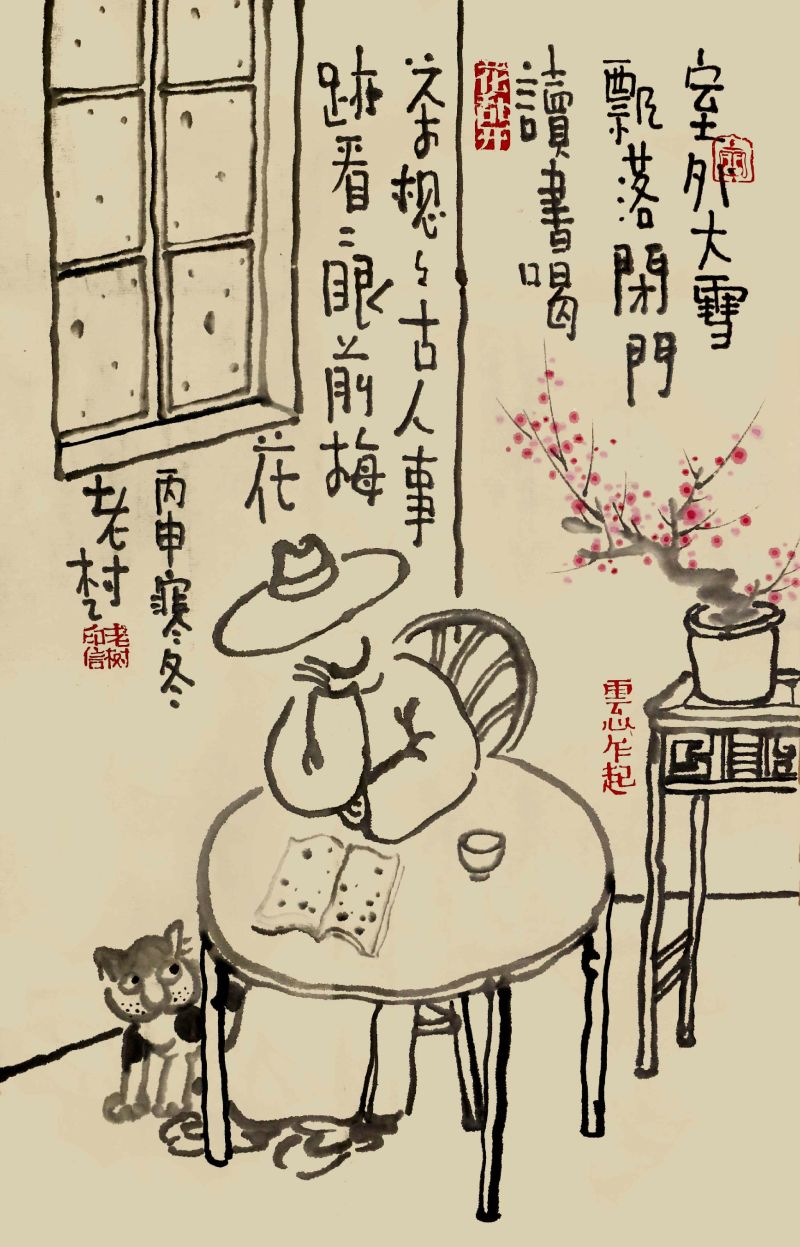 室外大雪
飄落閉門
讀書喝
茶想〻古人事
跡看〻眼前梅
花
丙申寒冬
老树
花乱开
雲心乍起
老树
印信